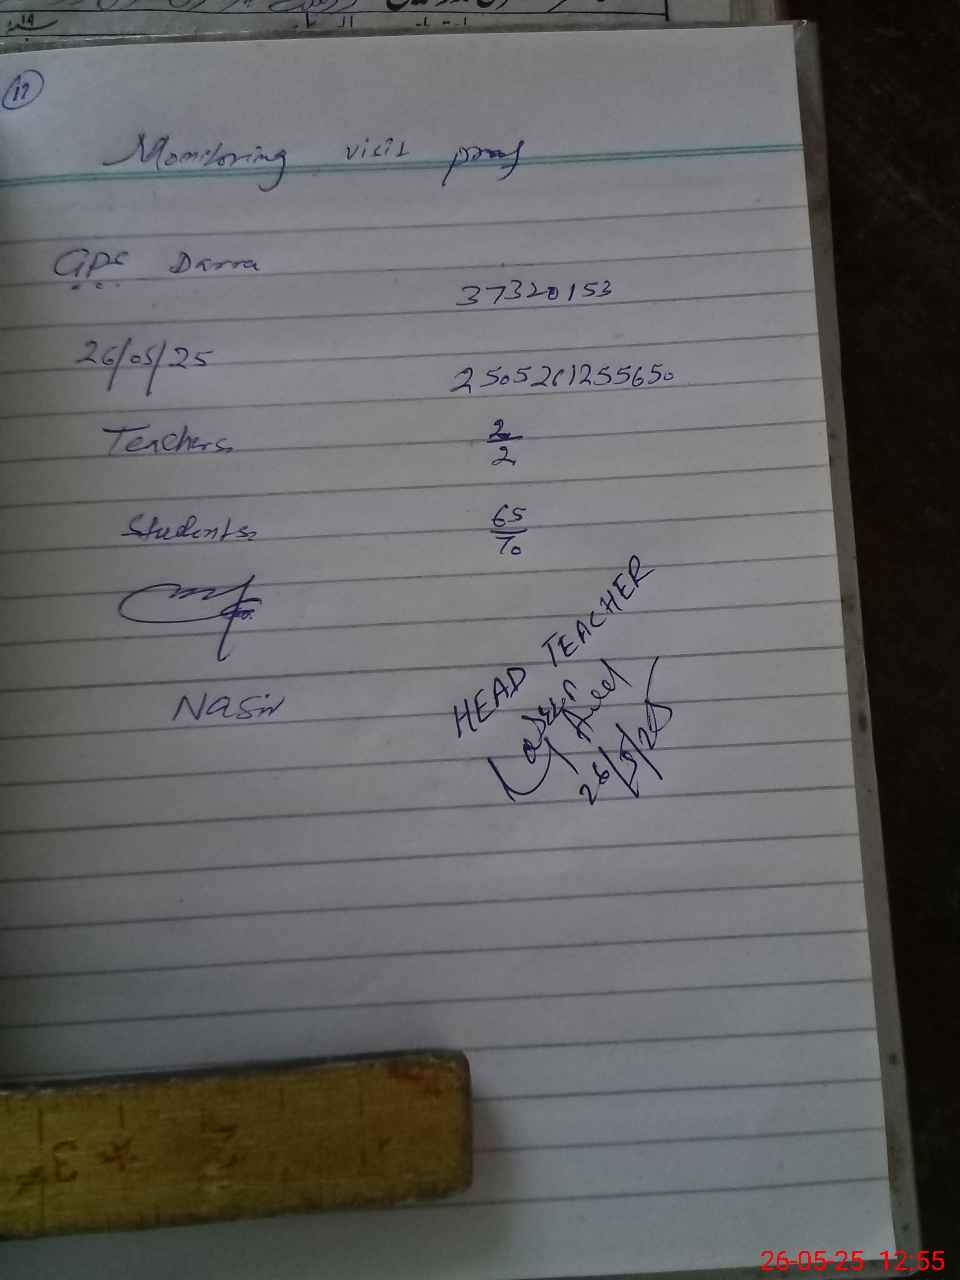 12
Monitoring visit proof
GPS Darra
37320153
26/05/25
2505261255650
Teachers 2/2
Students 65/70
Nasir
HEAD TEACHER
26/5/25
3
2
26-05-25 12,55